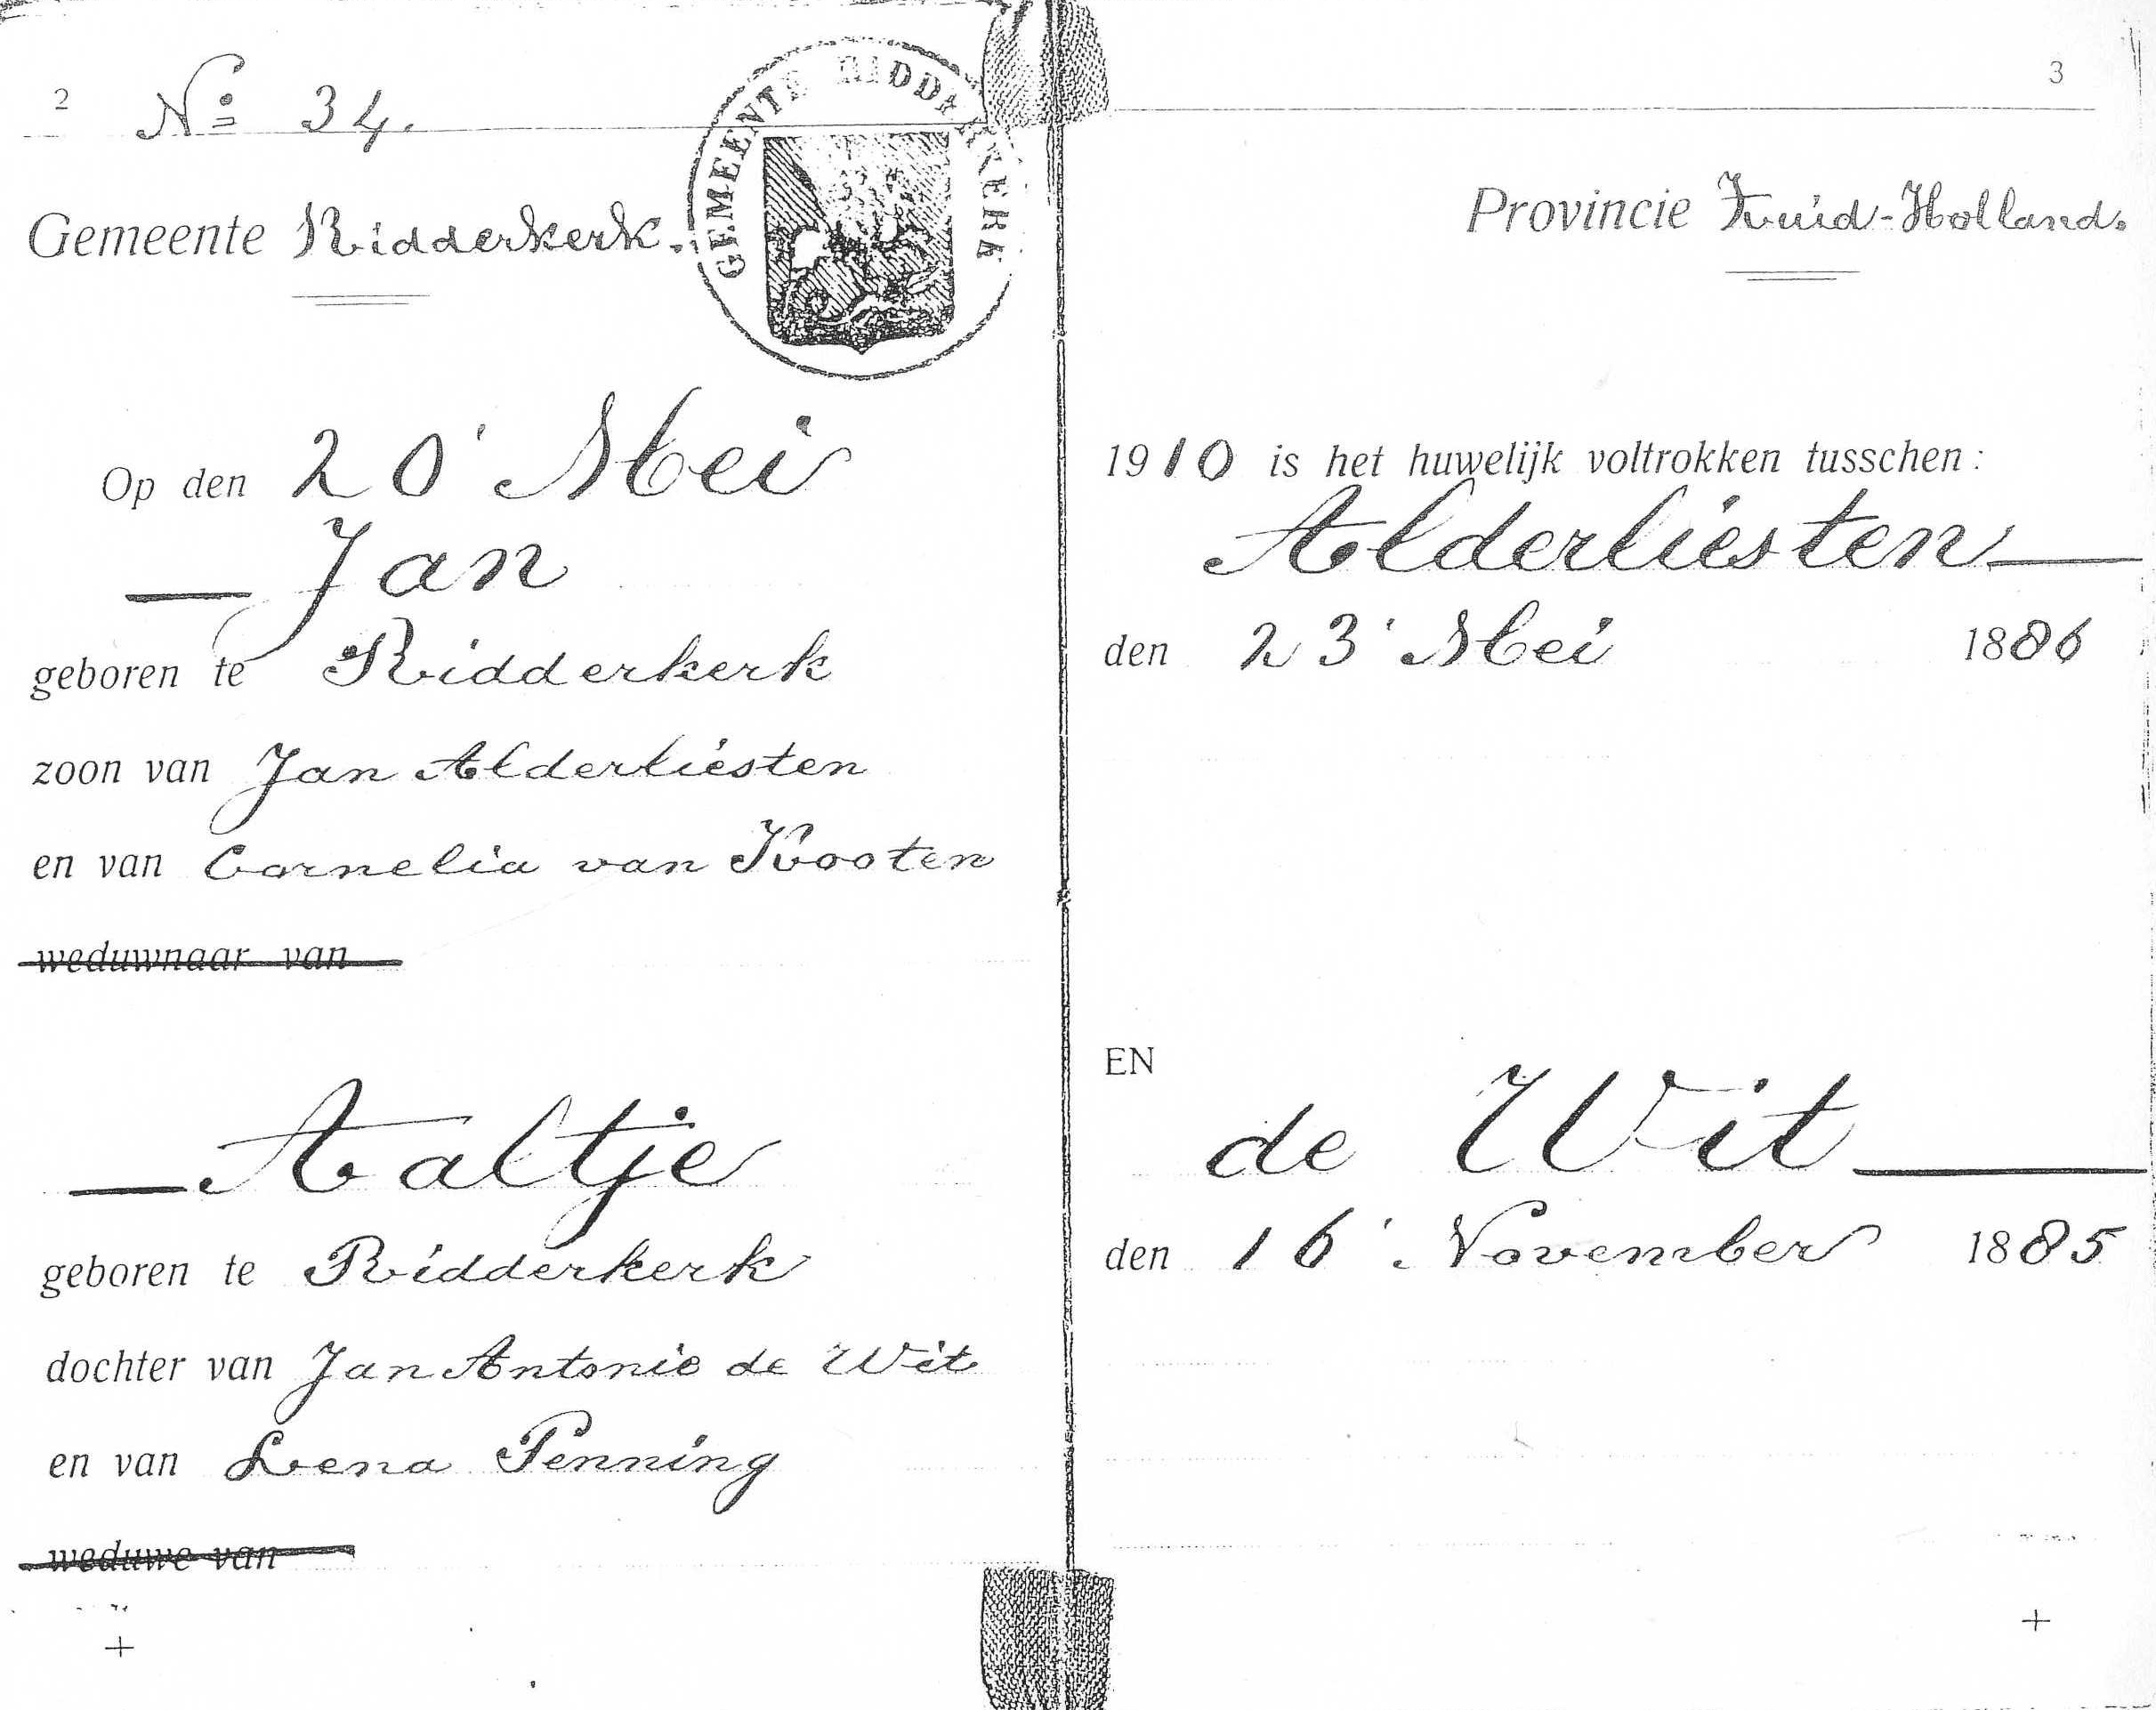 2 No 34.
GEMEENTE RIDDERKERK
Gemeente Ridderkerk.
Op den 20' Mei
Jan
geboren te Ridderkerk
zoon van Jan Alderliesten
en van Cornelia van Kooten
weduwnaar van
Aaltje
geboren te Ridderkerk
dochter van Jan Antonie de Wit
en van Lena Penning
weduwe van
3
Provincie Zuid-Holland.
1910 is het huwelijk voltrokken tusschen:
Alderliesten
den 23' Mei 1886
EN
de Wit
den 16' November 1885